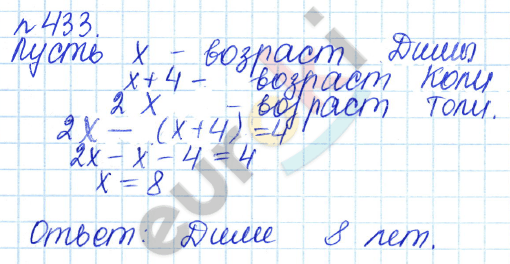 № 433.
Пусть x - возраст Димы
x + 4 - возраст Коли
2 x - возраст Толи.
2x - (x+4) = 4
2x - x - 4 = 4
x = 8
Ответ: Диме 8 лет.